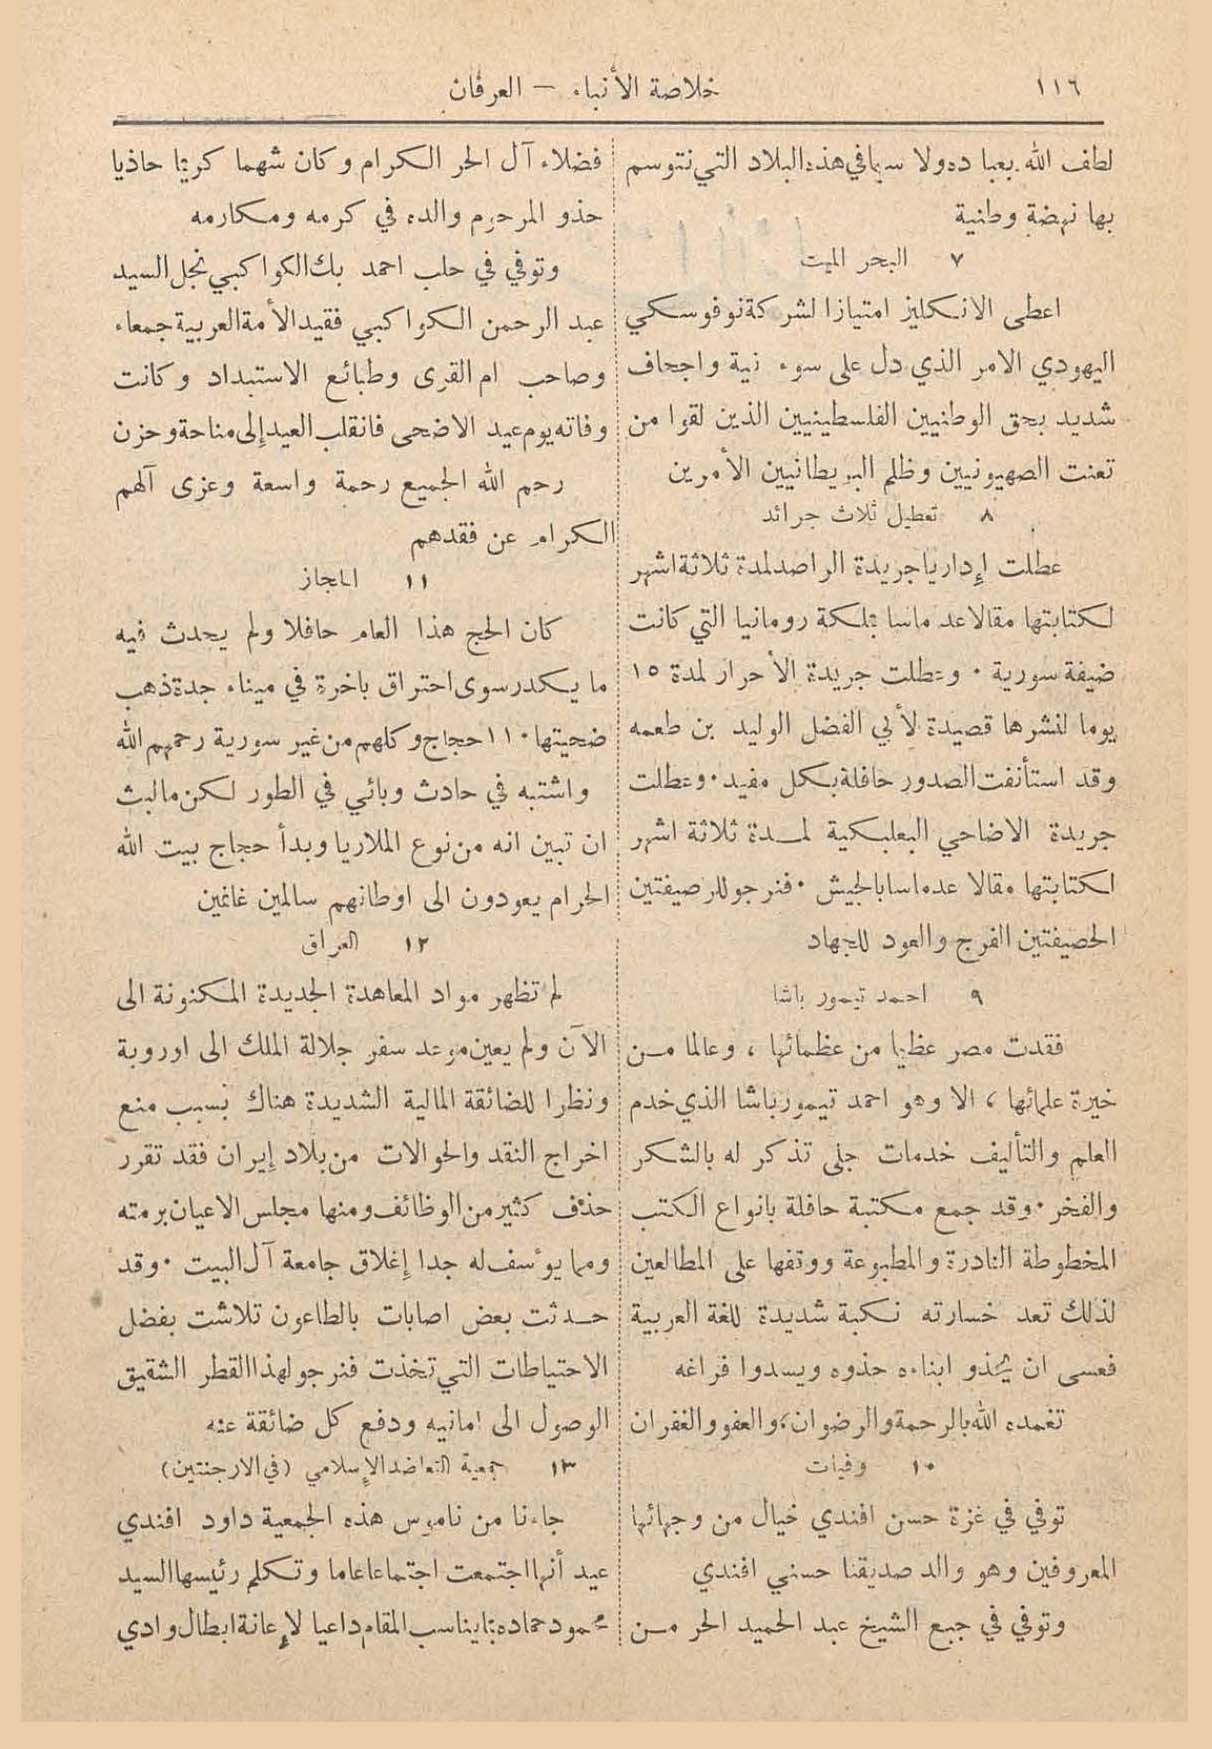 ١١٦
خلاصة الأنباء — العرفان
لطف الله بعباده ولا سيما في هذه البلاد التي نتوسم
بها نهضة وطنية
٧ البحر الميت
اعطى الانكليز امتيازا لشركة نوفوسكي
اليهودي الامر الذي دل على سوء نية واجحاف
شديد بحق الوطنيين الفلسطينيين الذين لقوا من
تعنت الصهيونيين وظلم البريطانيين الأمرين
٨ تعطيل ثلاث جرائد
عطلت إداريا جريدة الراصد لمدة ثلاثة اشهر
لكتابتها مقالا عد ماسا بملكة رومانيا التي كانت
ضيفة سورية ٠ وعطلت جريدة الأحرار لمدة ١٥
يوما لنشرها قصيدة لأبي الفضل الوليد بن طعمه
وقد استأنفت الصدور حافلة بكل مفيد ٠ وعطلت
جريدة الاضاحي البعلبكية لمدة ثلاثة اشهر
لكتابتها مقالا عد ماسا بالجيش ٠ فنرجو للرصيفتين
الحصيفتين الفرج والعود للجهاد
٩ احمد تيمور باشا
فقدت مصر عظيما من عظمائها ، وعالما من
خيرة علمائها ، الا وهو احمد تيمور باشا الذي خدم
العلم والتأليف خدمات جلى تذكر له بالشكر
والفخر ٠ وقد جمع مكتبة حافلة بانواع الكتب
المخطوطة النادرة والمطبوعة ووقفها على المطالعين
لذلك تعد خسارته نكبة شديدة للغة العربية
فعسى ان يحذو ابناءه حذوه ويسدوا فراغه
تغمده الله بالرحمة والرضوان ، والعفو والغفران
١٠ وفيات
توفي في غزة حسن افندي خيال من وجهائها
المعروفين وهو والد صديقنا حسني افندي
وتوفي في جبع الشيخ عبد الحميد الحر من
فضلاء آل الحر الكرام وكان شهما كريما حاذيا
حذو المرحوم والده في كرمه ومكارمه
وتوفي في حلب احمد بك الكواكبي نجل السيد
عبد الرحمن الكواكبي فقيد الأمة العربية جمعاء
وصاحب ام القرى وطبائع الاستبداد وكانت
وفاته يوم عيد الاضحى فانقلب العيد إلى مناحة وحزن
رحم الله الجميع رحمة واسعة وعزى آلهم
الكرام عن فقدهم
١١ الحجاز
كان الحج هذا العام حافلا ولم يحدث فيه
ما يكدر سوى احتراق باخرة في ميناء جدة ذهب
ضحيتها ١١٠ حجاج وكلهم من غير سورية رحمهم الله
واشتبه في حادث وبائي في الطور لكن ما لبث
ان تبين انه من نوع الملاريا وبدأ حجاج بيت الله
الحرام يعودون الى اوطانهم سالمين غانمين
١٢ العراق
لم تظهر مواد المعاهدة الجديدة المكنونة الى
الآن ولم يعين موعد سفر جلالة الملك الى اوروبة
ونظرا للضائقة المالية الشديدة هناك بسبب منع
اخراج النقد والحوالات من بلاد إيران فقد تقرر
حذف كثير من الوظائف ومنها مجلس الاعيان برمته
ومما يؤسف له جدا إغلاق جامعة آل البيت ٠ وقد
حدثت بعض اصابات بالطاعون تلاشت بفضل
الاحتياطات التي تخذت فنرجو لهذا القطر الشقيق
الوصول الى امانيه ودفع كل ضائقة عنه
١٣ جمعية التعاضد الإسلامي (في الارجنتين)
جاءنا من ناموس هذه الجمعية داود افندي
عيد أنها اجتمعت اجتماعا عاما وتكلم رئيسها السيد
محمود حماده بما يناسب المقام داعيا لإعانة ابطال وادي